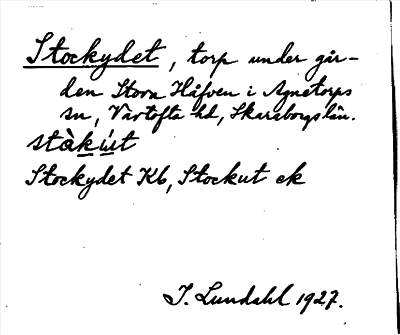 Stockydet, torp under går-
den Stora Håfven i Agnetorps
sn, Vartofta hd, Skaraborgs län.
stàkut
Stockydet Kb, Stockut ek
I. Lundahl 1927.